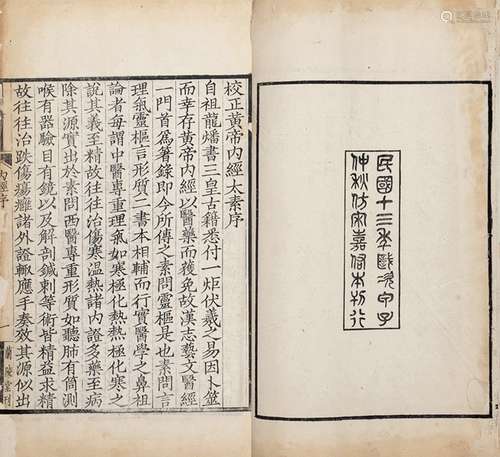 民國十三年歲次甲子
仲秋仿宋嘉祐本刊行
校正黃帝內經太素序
自祖龍燔書三皇古籍悉付一炬伏羲之易因卜筮
而幸存黃帝內經以醫藥而獲免故漢志藝文醫經
一門首爲著錄即今所傳之素問靈樞是也素問言
理氣靈樞言形質二書本相輔而行實醫學之鼻祖
論者每謂中醫專重理氣如寒極化熱熱極化寒之
說其義至精故往往治傷寒溫熱諸內證多藥至病
除其源實出於素問西醫專重形質如聽肺有筒測
喉有器驗目有鏡以及解剖鍼刺等術皆精益求精
故往往治跌傷瘍癰諸外證輒應手奏效其源似出
內經序
一
蘭陵堂刊